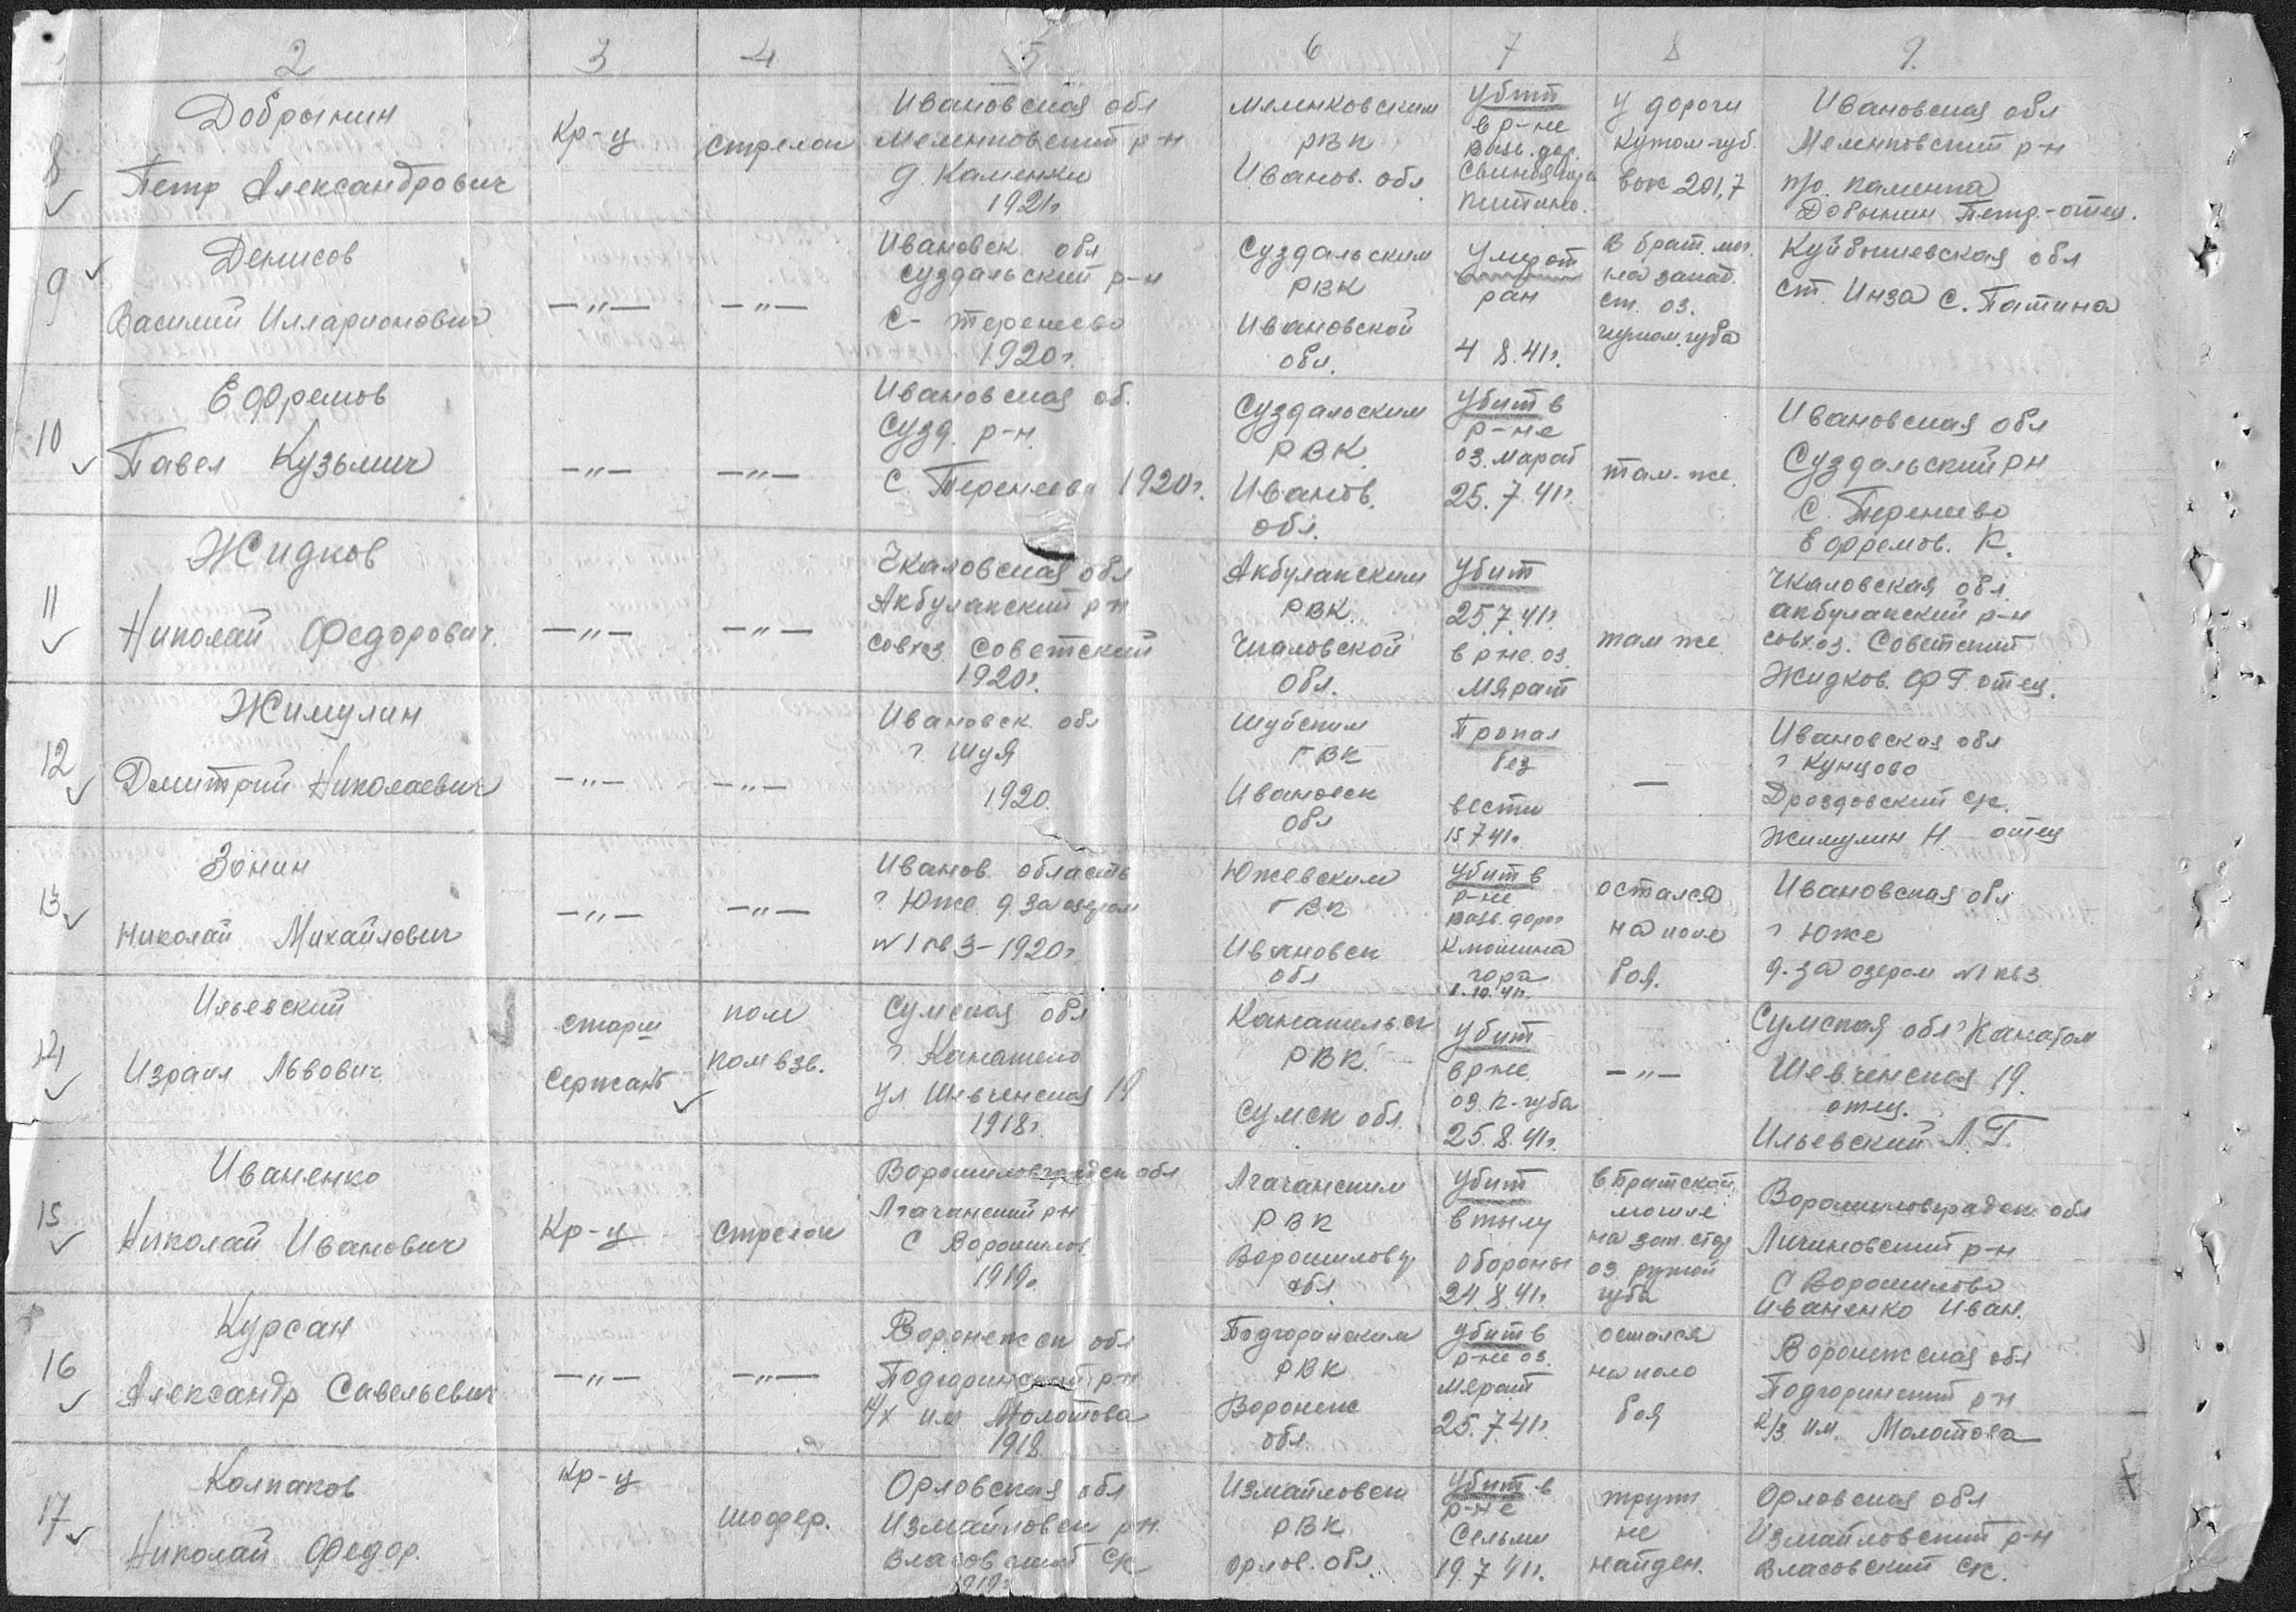 2 3 4 5 6 7 8 9.
8
Добрынин
Петр Александрович
Кр-ц
стрелок
Ивановская обл
Меленковский р-н
д. Каменки
1921г
Меленковским
РВК
Иванов. обл
Убит
в р-не
разв. дор.
у дороги
Кутом-губ.
выс 201,7
Ивановская обл
Меленковский р-н
п/о. Каменка
Добынин Петр.-отец.
9
Денисов
Василий Илларионович
—„— —„—
Ивановск обл
Суздальский р-н
с- Теренеево
1920г
Суздальским
РВК
Ивановской
обл.
Умер от
ран
4 8.41г.
В брат. мог.
на запад.
ст. оз.
кутом. губа
Куйбышевская обл
ст. Инза с. Папина
10
Ефремов
Павел Кузьмич
—„— —„—
Ивановская об.
Сузд. р-н.
с. Теренеево 1920г.
Суздальским
РВК.
Иванов.
обл.
Убит в
р-не
оз. Марат
25.7.41г.
там-же.
Ивановская обл
Суздальский рн
с. Теренеево
Ефремов. К.
11
Жидков
Николай Федорович.
—„— —„—
Чкаловская обл
Акбулакский р-н
совхоз Советский
1920г.
Акбулакским
РВК.
Чкаловской
обл.
Убит
25.7.41г.
в рне. оз.
Мярат
там же
Чкаловская обл.
акбулакский р-н
совхоз. Советский
Жидков. Ф Г. отец.
12
Жимулин
Дмитрий Николаевич
—„— —„—
Ивановск обл
г Шуя
1920.
Шуйским
ГВК
Ивановск
обл
Пропал
без
вести
15 7 41г.
—
Ивановская обл
г Кунцово
Дроздовский с/с.
Жимулин Н отец
13
Зонин
Николай Михайлович
—„— —„—
Иванов область
г Юже д За озером
№1 кв 3-1920г.
Южевским
ГВК
Ивановск
обл
Убит в
р-не
разв. дорог
гора
1.10.41г.
остался
на поле
боя.
Ивановская обл
г Юже
д. за озером №1 кв3
14
Ильевский
Израил Львович
старш
Сержант
пом
ком взв.
Сумская обл
г Канатело
ул Шевченская 19
1918г.
РВК.
Сумск обл.
Убит
в рне.
оз. К-губа
25.8.41г.
—„—
Сумская обл г
Шевченская 19.
отец.
Ильевский Л. Г.
15
Иваненко
Николай Иванович
Кр-ц
стрелок
Ворошиловградск обл
рн
с Ворошилов.
1919г
РВК
Ворошиловг
обл
Убит
в тылу
обороны
24.8.41г.
в братской
могиле
на зап. стор
оз
губа
Ворошиловградск обл
р-н
с Ворошилово
Иваненко Иван.
16
Курсан
Александр Савельевич
—„— —„—
Воронежск обл
Подгоринский р-н
к/х им Молотова
1918
Подгоринским
РВК
Воронеж
обл.
Убит в
р-не оз.
Мярат
25.7.41г.
остался
на поле
боя
Воронежская обл
Подгоринский р-н
к/з им. Молотова
17
Колпаков
Николай Федор.
Кр-ц
шофер.
Орловская обл
Измайловск р-н.
Власовский с/с
1919г
Измайловск
РВК
Орлов. обл.
Убит в
р-не
Сельми
19.7 41г.
труп
не
найден.
Орловская обл
Измайловский р-н
Власовский с/с.